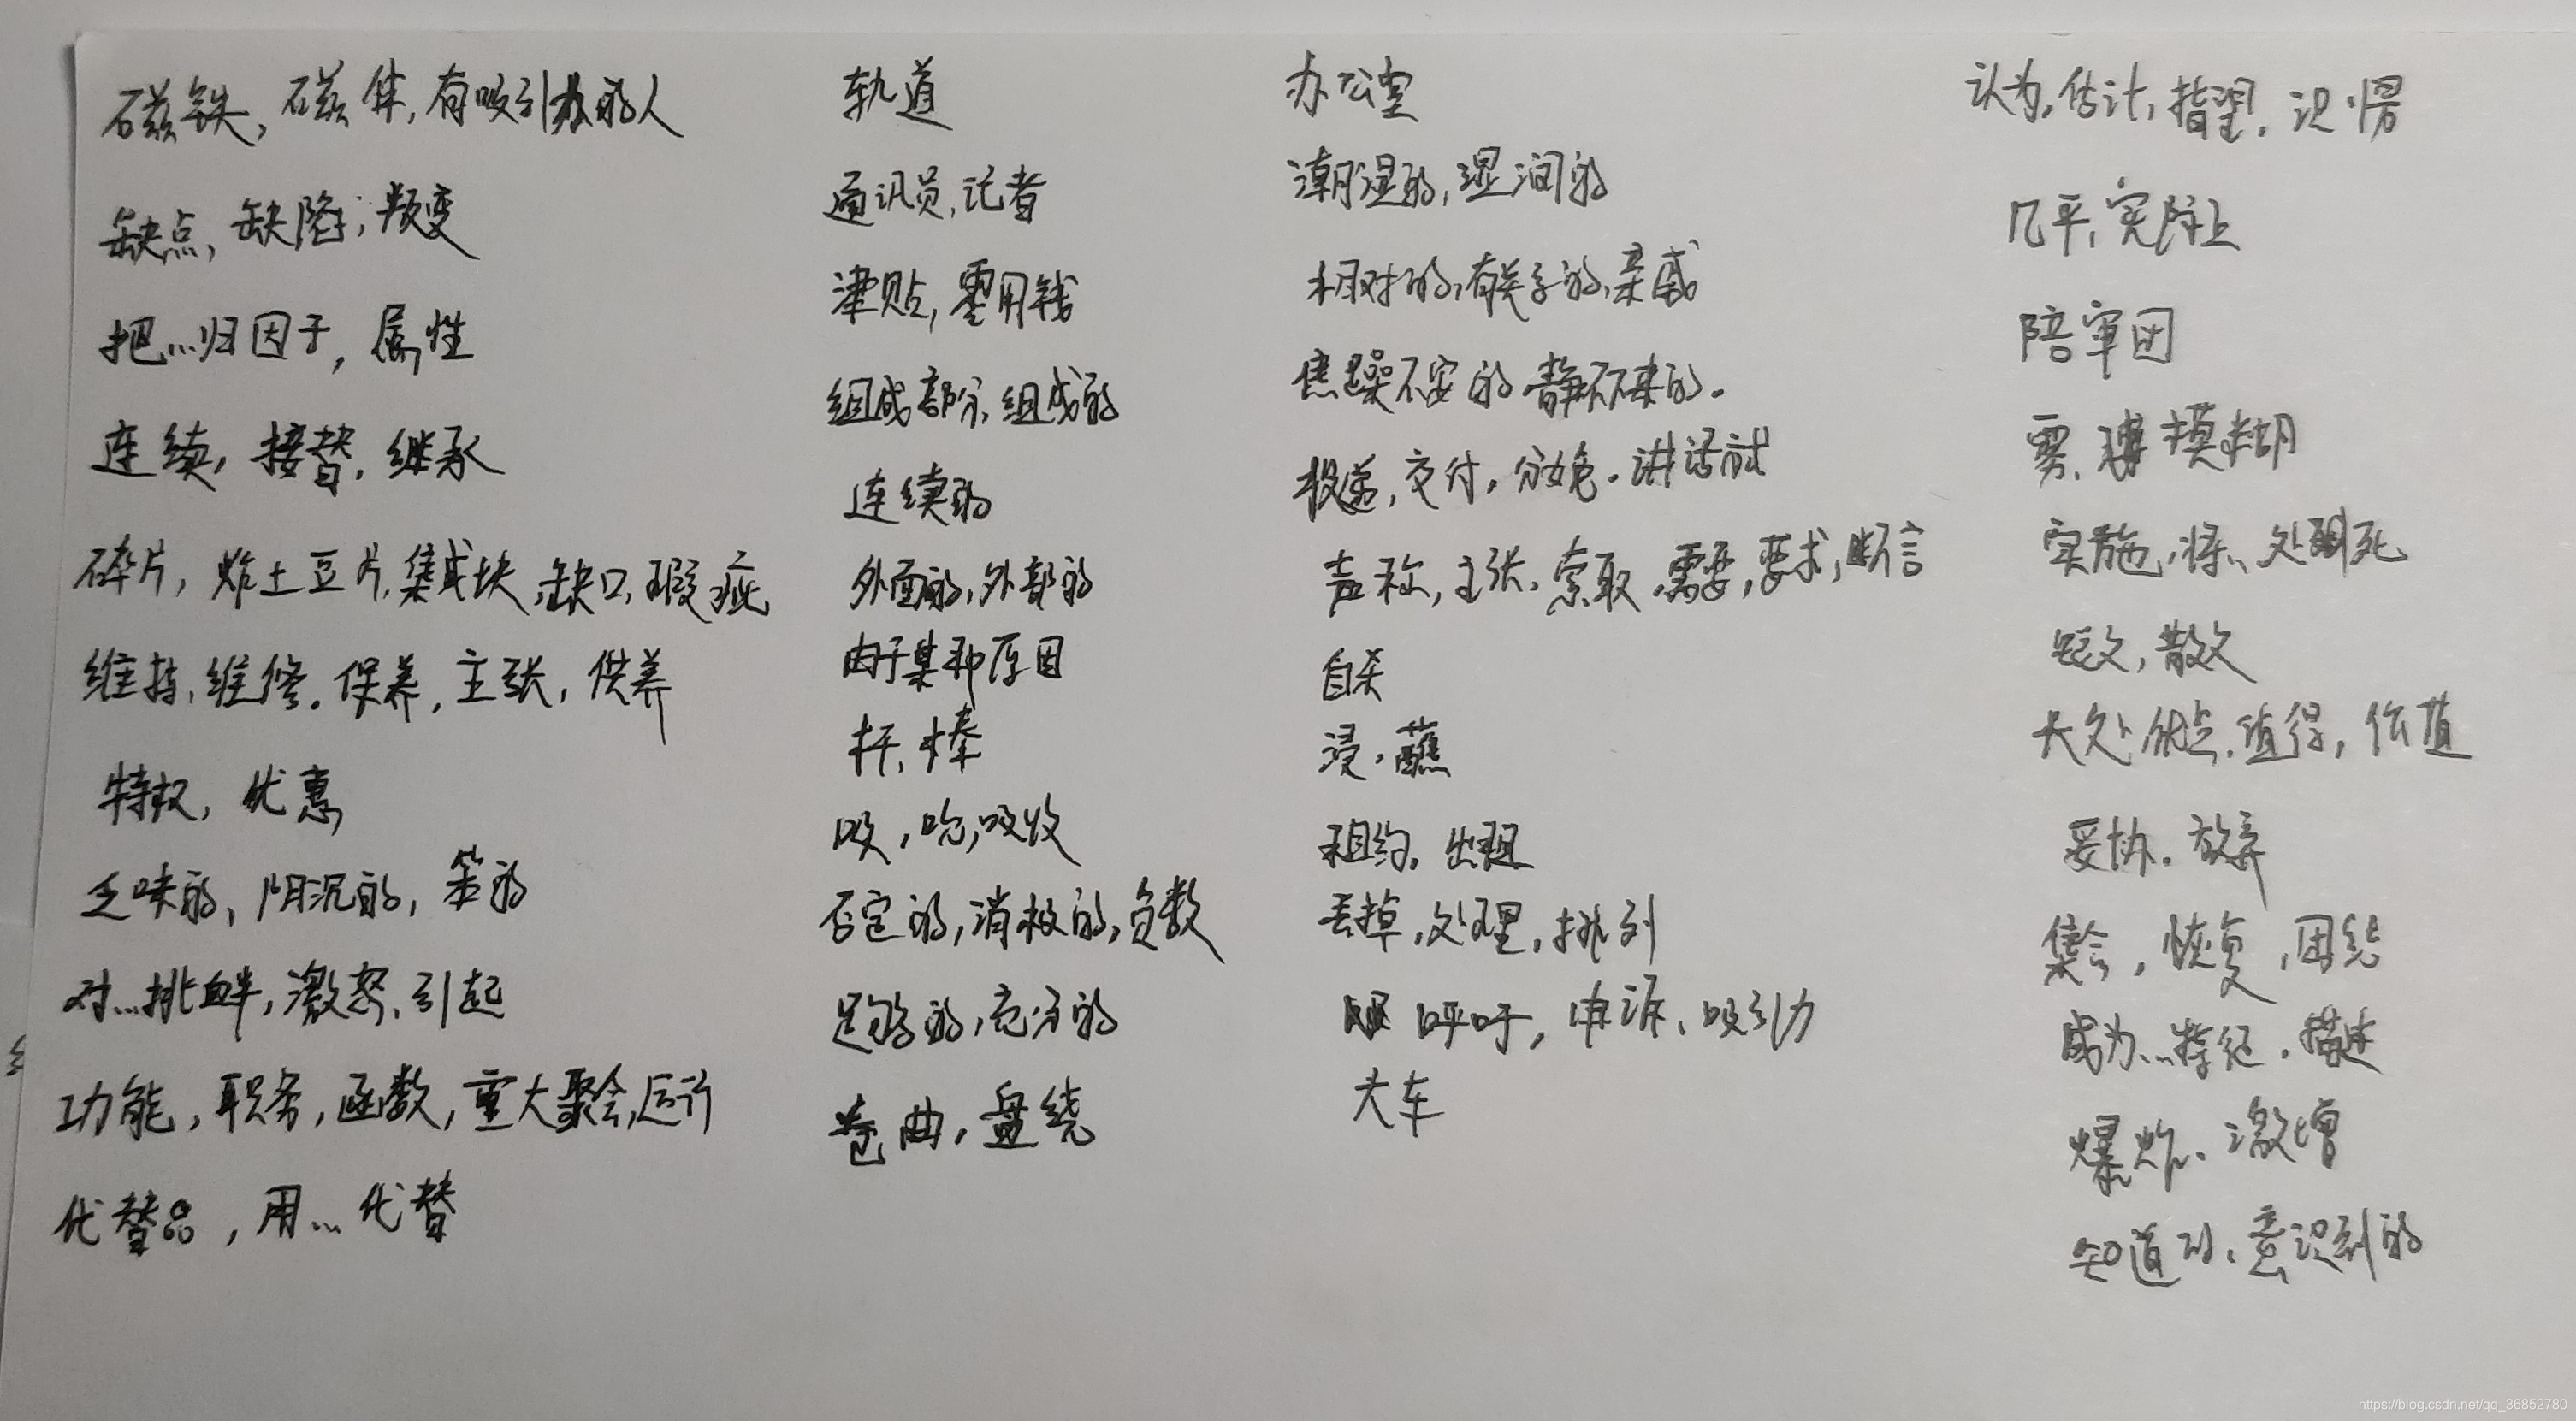 磁铁, 磁体, 有吸引力的人
缺点, 缺陷; 叛变
把…归因于, 属性
连续, 接替, 继承
碎片, 炸土豆片, 集成块, 缺口, 瑕疵
维持, 维修, 保养, 主张, 供养
特权, 优惠
乏味的, 阴沉的, 笨的
对…挑衅, 激怒, 引起
功能, 职务, 函数, 重大聚会, 运行
代替品, 用…代替
轨道
通讯员, 记者
津贴, 零用钱
组成部分, 组成的
连续的
外面的, 外部的
由于某种原因
杆, 棒
吸, 吮, 吸收
否定的, 消极的, 负数
足够的, 充分的
卷曲, 盘绕
办公室
潮湿的, 湿润的
相对的, 有关系的, 亲戚
焦躁不安的, 静不下来的.
投递, 交付, 分娩. 讲话
声称, 主张, 索取, 需要, 要求, 断言
自杀
浸, 蘸
租约, 出租
丢掉, 处理, 排列
呼吁, 申诉, 吸引力
大车
认为, 估计, 指望,
几乎, 实际上
陪审团
雾, 模糊
实施, 将… 处死
短文, 散文
长处, 优点, 值得, 价值
妥协. 放弃
集会, 恢复, 团结
成为…特征. 描述
爆炸. 激增
知道的, 意识到的
https://blog.csdn.net/qq_36852780